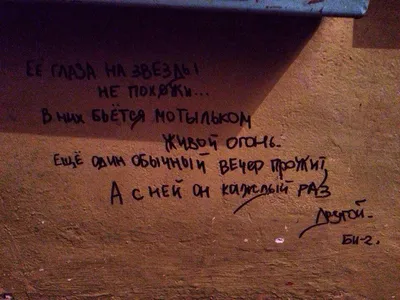 ЕЁ ГЛАЗА НА ЗВЕЗДЫ
НЕ ПОХОЖИ...
В НИХ БЬЁТСЯ МОТЫЛЬКОМ
ЖИВОЙ ОГОНЬ.
ЕЩЁ ОДИН ОБЫЧНЫЙ ВЕЧЕР ПРОЖИТ,
А С НЕЙ ОН КАЖДЫЙ РАЗ
ДРУГОЙ.
БИ-2.